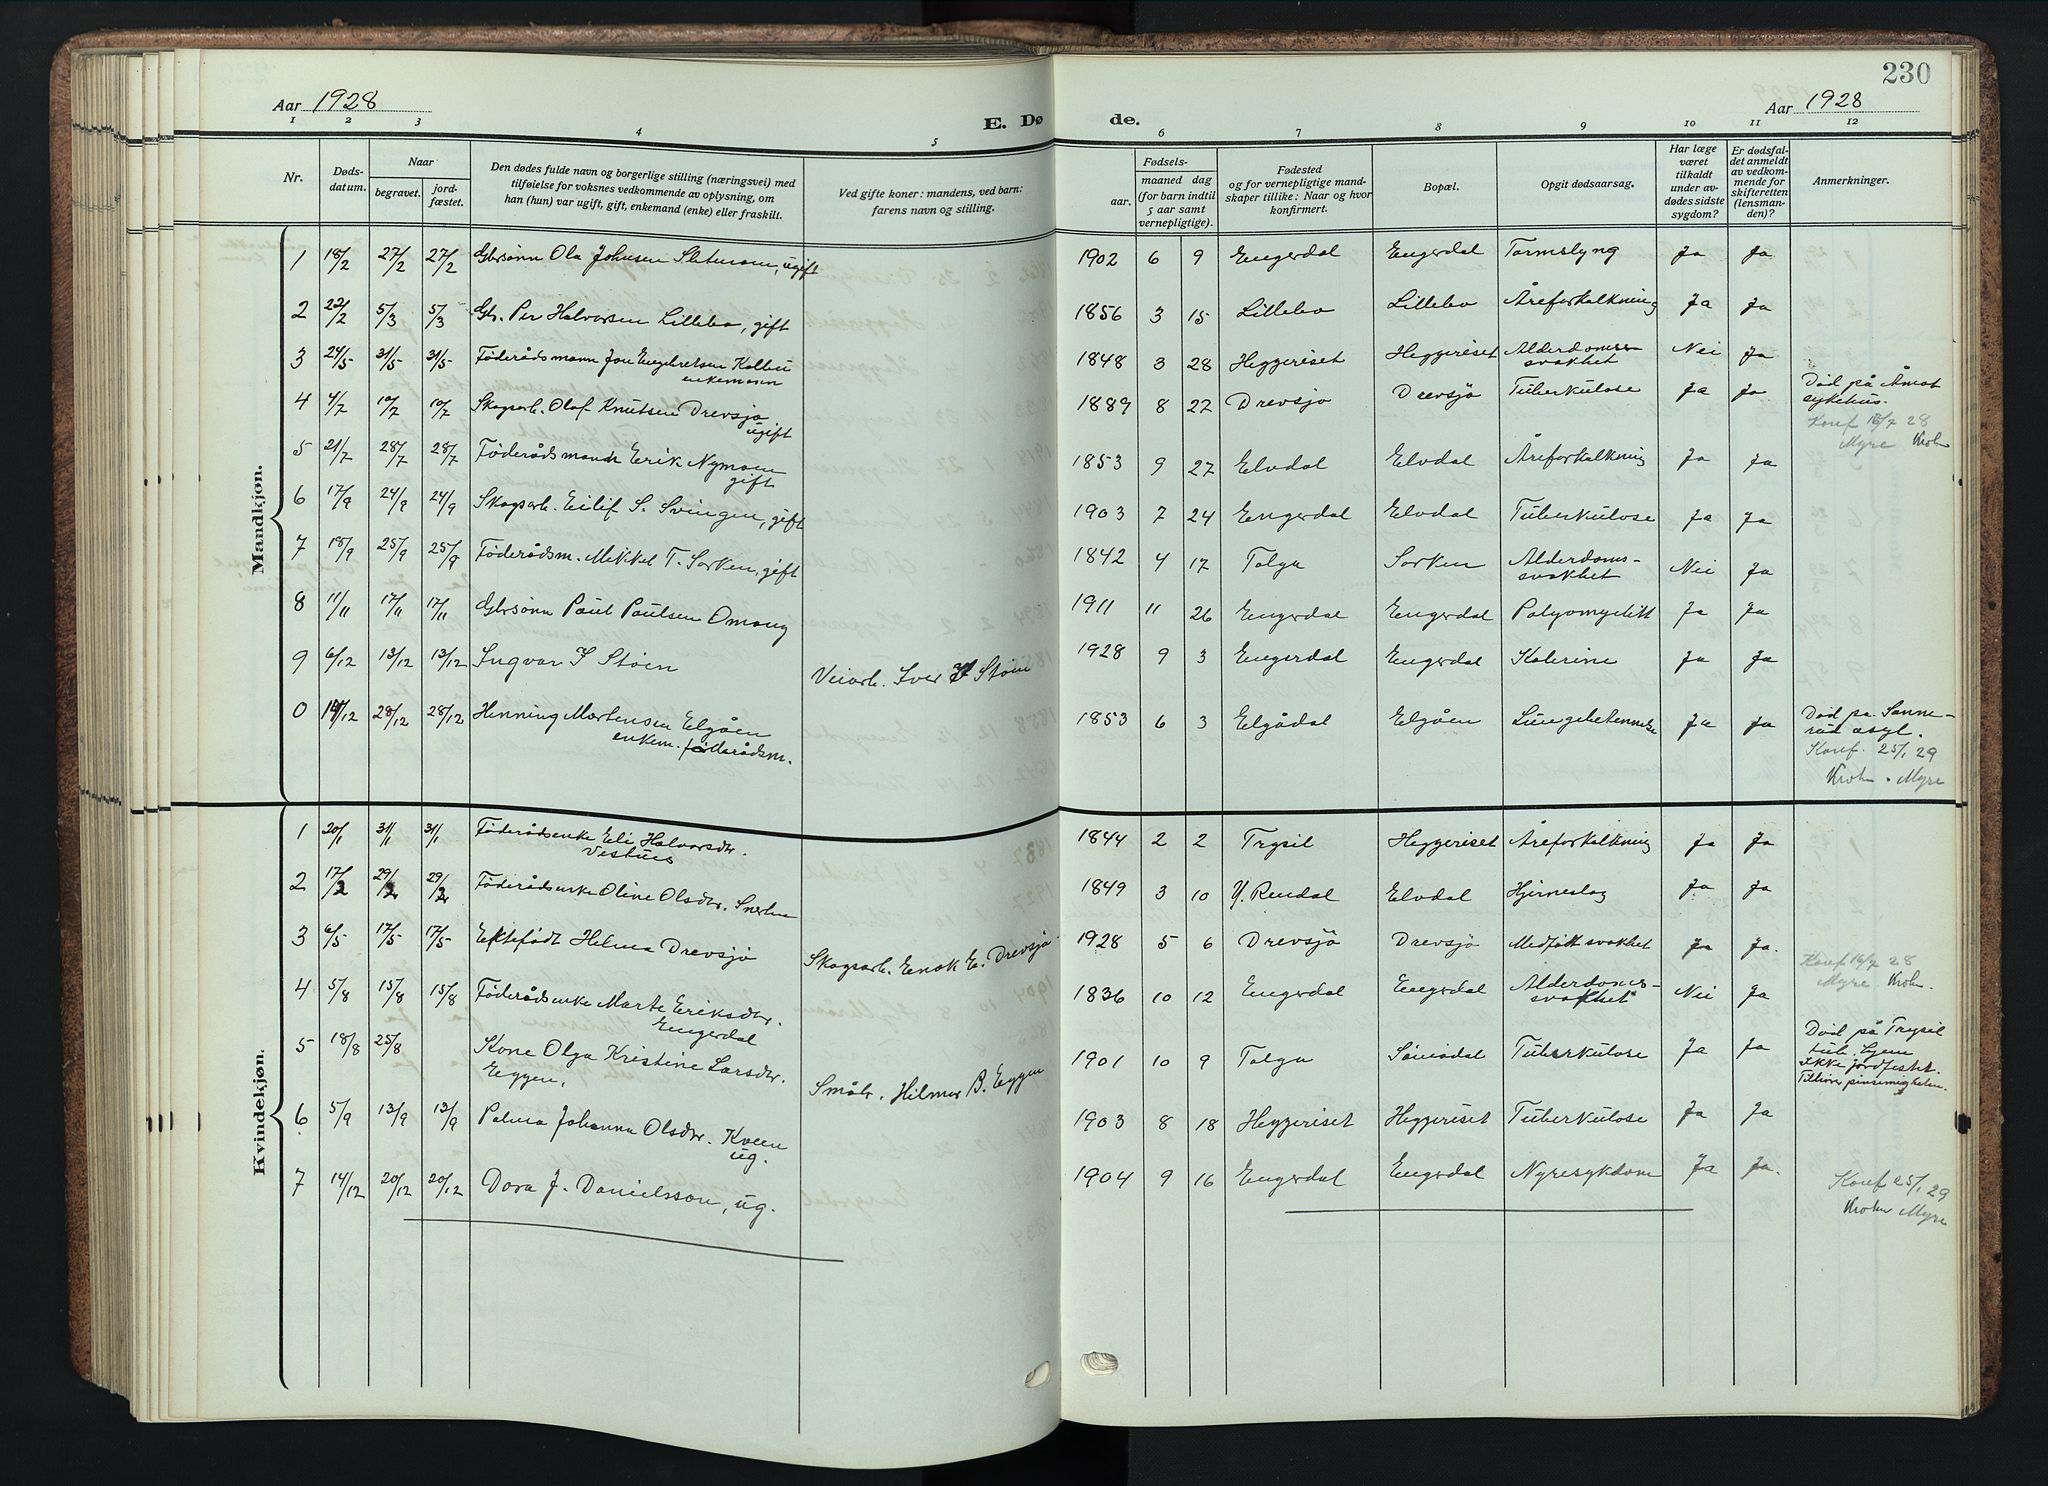 230
Aar 1928
E. Dø
de.
Aar 1928
1 2 3 4 5 6 7 8 9 10 11 12
Nr.
Døds-
datum.
Naar
begravet.
jord-
fæstet.
Den dødes fulde navn og borgerlige stilling (næringsvei) med
tilføielse for voksnes vedkommende av oplysning, om
han (hun) var ugift, gift, enkemand (enke) eller fraskilt.
Ved gifte koner: mandens, ved barn:
farens navn og stilling.
Fødsels-
aar.
maaned dag
(for barn indtil
5 aar samt
vernepligtige).
Fødested
og for vernepligtige mand-
skaper tillike: Naar og hvor
konfirmert.
Bopæl.
Opgit dødsaarsag.
Har læge
været
tilkaldt
under av-
dødes sidste
sygdom?
Er dødsfal-
det anmeldt
av vedkom-
mende for
skifteretten
(lensman-
den)?
Anmerkninger.
Mandkjøn.
1 18/2 27/2 27/2 Gbrsønn Ola Johnsen Sletmoen, ugift 1902 6 9 Engerdal Engerdal Tarmslyng Ja Ja
2 22/2 5/3 5/3 Gbr. Per Halvorsen Lillebo, gift 1856 3 15 Lillebo Lillebo Åreforkalkning Ja Ja
3 24/5 31/5 31/5 Føderådsmann Jon Engebretsen Kolbu 1848 3 28 Heggeriset Heggeriset Alderdoms-
enkemann svakhet Nei Ja
4 4/7 10/7 10/7 Skogsarb. Olaf Knutsen Drevsjø 1889 8 22 Drevsjø Drevsjø Tuberkulose Ja Ja Död på Åmot
ugift sykehus.
Konf 16/7 28
Myre Krohn
5 21/7 28/7 28/7 Føderådsmand Erik Nymoen 1853 9 27 Elvdal Elvdal Åreforkalkning Ja Ja
gift
6 17/9 24/9 24/9 Skogsarb. Eilif S. Svingen, gift 1903 7 24 Engerdal Elvdal Tuberkulose Ja Ja
7 18/9 25/9 25/9 Føderådsm. Mikkel T. Sorken, gift 1842 4 17 Tolga Sorken Alderdoms-
svakhet Nei Ja
8 11/11 17/11 17/11 Gbrsønn Paul Paulsen Omang 1911 11 26 Engerdal Engerdal Polyomyelitt Ja Ja
9 6/12 13/12 13/12 Ingvar I Støen Veiarb. Iver Støen 1928 9 3 Engerdal Engerdal Ja Ja
0 19/12 28/12 28/12 Henning Mortensen Elgåen 1853 6 3 Elgådal Elgåen Lungebetennelse Ja Ja Död på Sanne-
enkem. føderådsm. rud asyl.
Konf. 25/1 29
Krohn. Myre
Kvindekjøn.
1 20/1 31/1 31/1 Føderådsenke Eli Halvorsdtr. 1844 2 2 Trysil Heggeriset Åreforkalkning Ja Ja
Vesthus
2 17/2 29/2 29/2 Føderådsenke Oline Olsdtr. 1849 3 10 Y. Rendal Elvdal Hjerneslag Ja Ja
3 6/5 17/5 17/5 Ektefødt Helma Drevsjø Skogsarb. Enok E. Drevsjø 1928 5 6 Drevsjø Drevsjø Medfött svakhet Ja Ja.
Konf 16/7 28
Myre Krohn.
4 5/8 15/8 15/8 Føderådsenke Marte Eriksdtr. 1836 10 12 Engerdal Engerdal Alderdoms-
Engerdal svakhet Nei Ja
5 18/8 25/8 Kone Olga Kristine Larsdtr. Småbr. Hilmer B. Eggen 1901 10 9 Tolga Sømådal Tuberkulose Ja Ja Död på Trysil
Eggen, tub. hjem
Ikke jordfestet.
6 5/9 13/9 13/9 Palma Johanna Olsdtr. Kveen 1903 8 18 Heggeriset Heggeriset Tuberkulose Ja Ja
ug.
7 14/12 20/12 20/12 Dora J. Danielsson, ug. 1904 9 16 Engerdal Engerdal Nyresykdom Ja Ja.
Konf 25/1 29
Krohn Myre